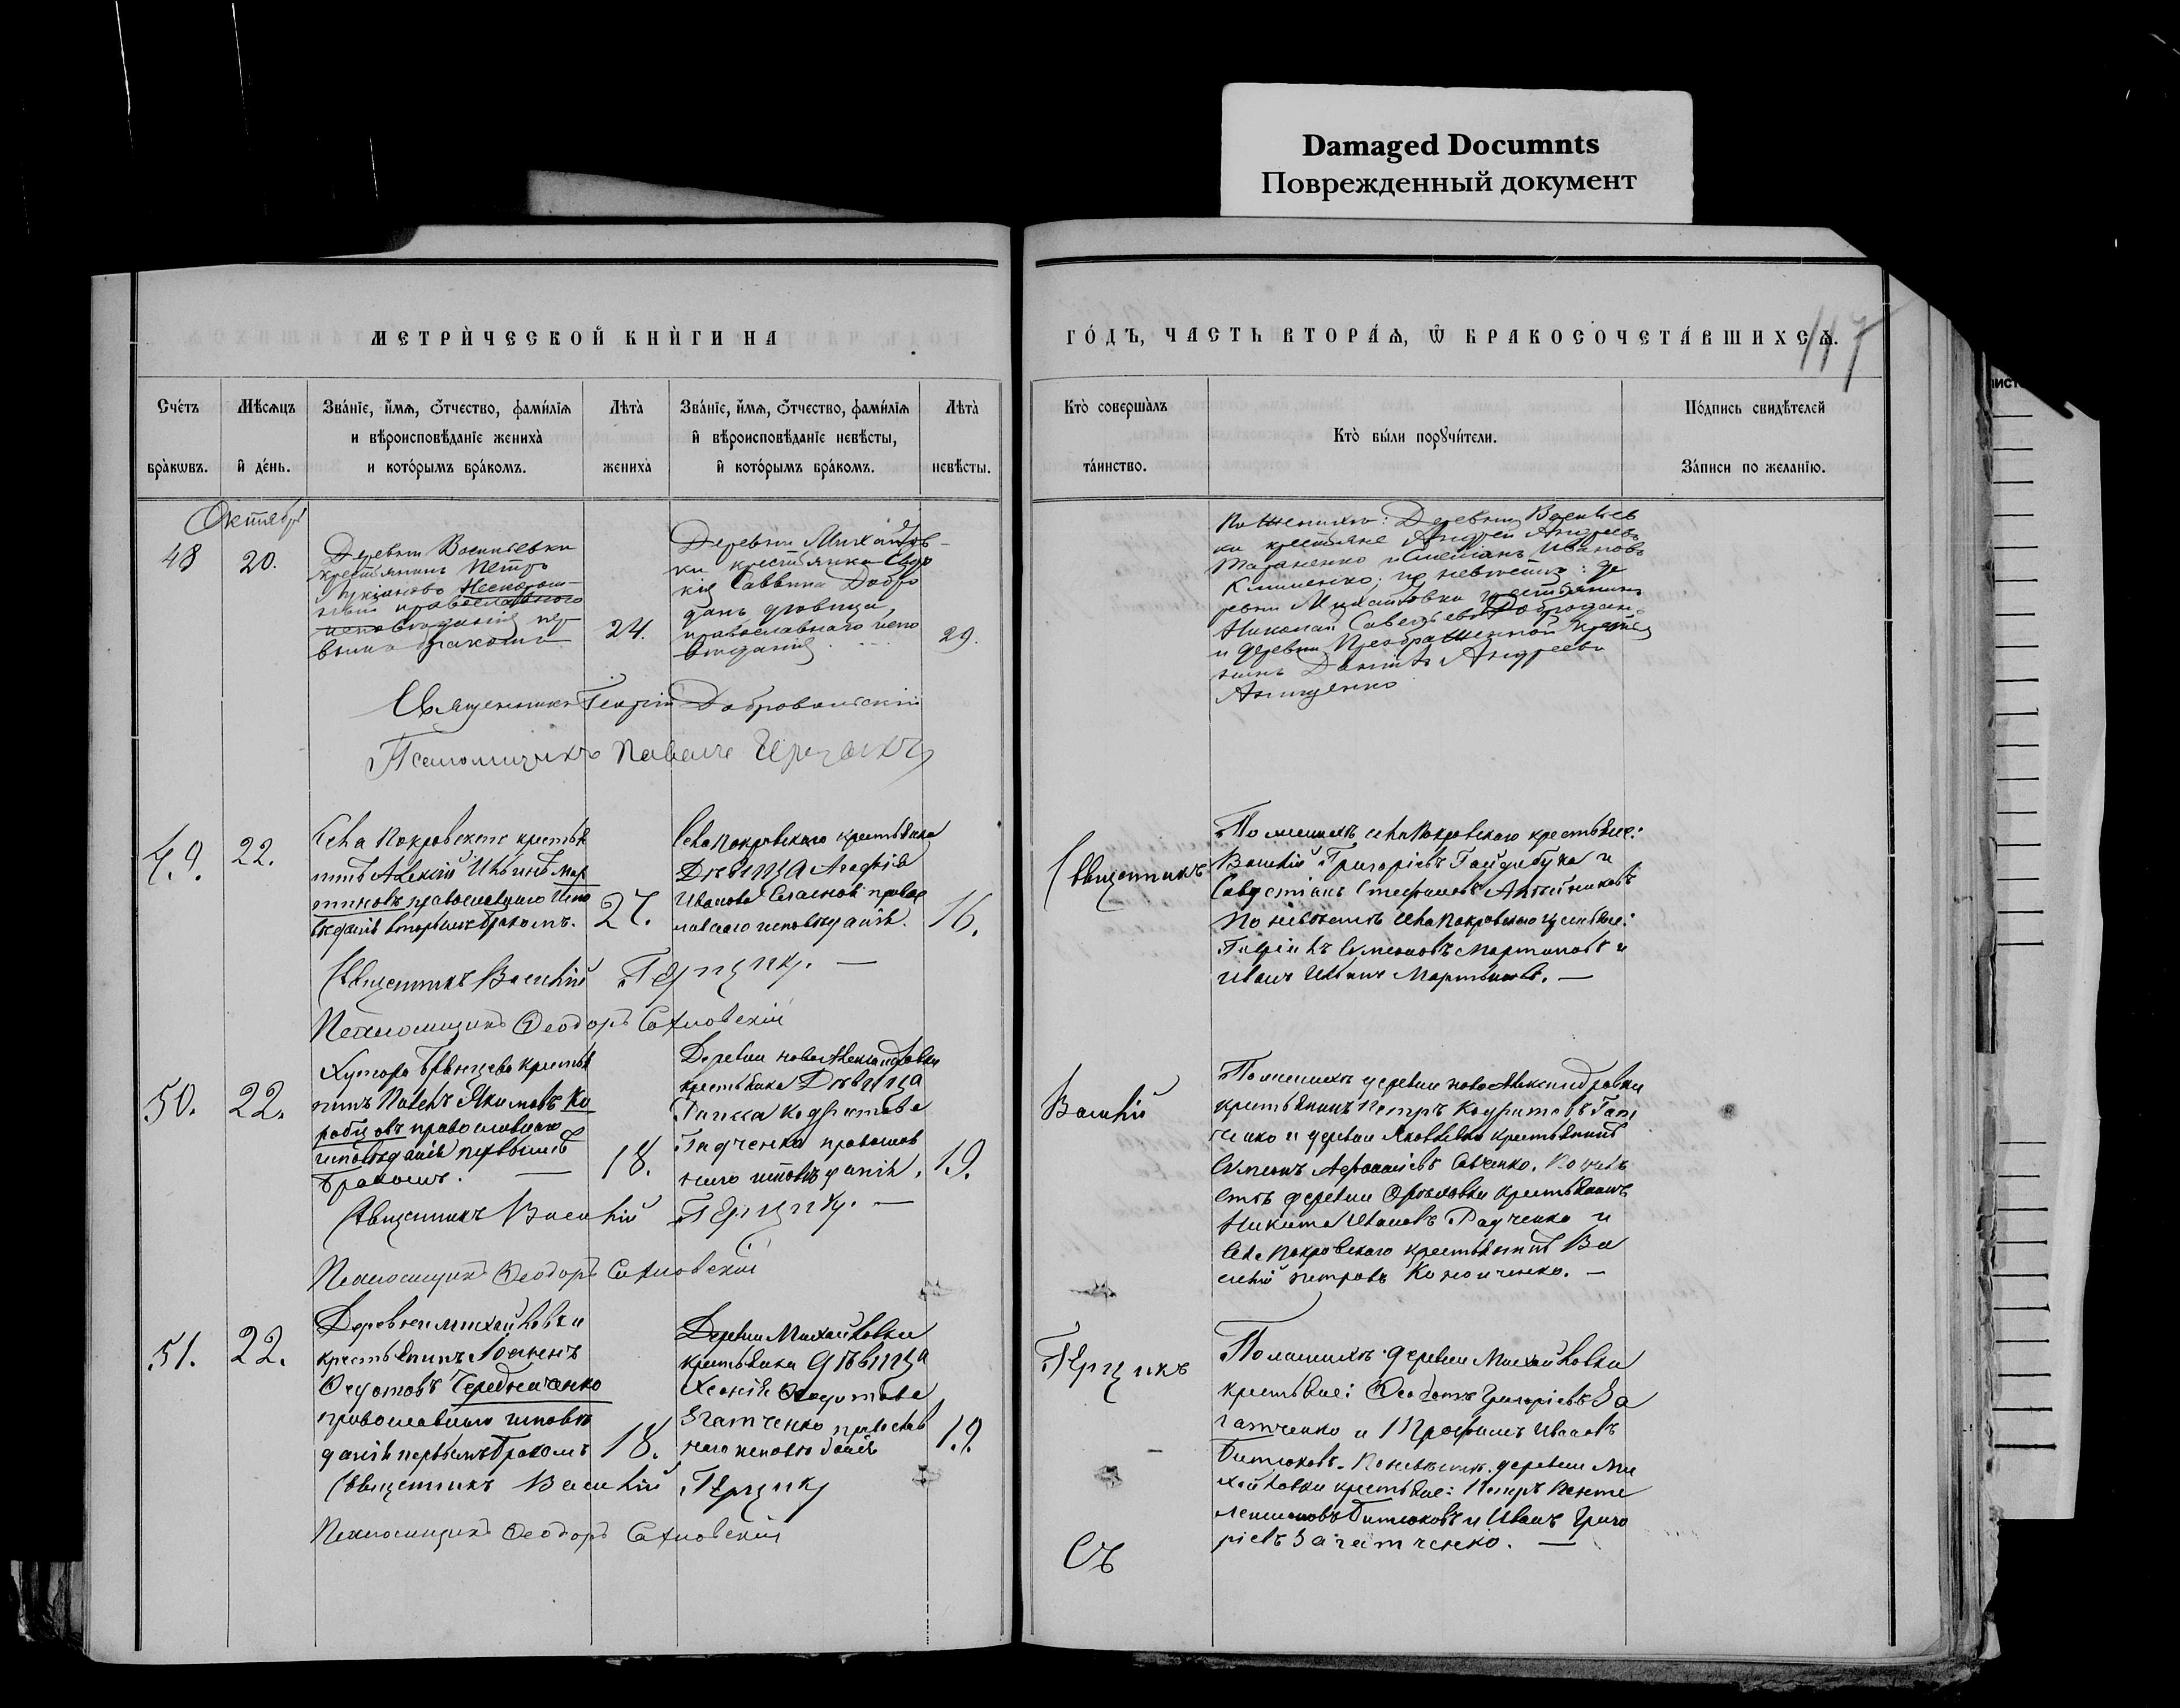 Damaged Documnts
Поврежденный документ
МЕТРИ́ЧЕСКОЙ КНИ́ГИ НА
ГО́ДЪ, ЧАСТЬ ВТОРА́Ѧ, Ѿ БРАКОСОЧЕТА́ВШИХСѦ.
117
Сче́тъ бра̀кѡвъ.
Мѣ́сѧцъ и҆ де́нь.
Зва́нїе, и҆́мѧ, ѻ҆́тчество, фами́лїѧ
и вѣроисповѣ́данїе жениха̀
и кото́рымъ бра́комъ.
Лѣта̀ жениха̀
Зва́нїе, и҆́мѧ, ѻ҆́тчество, фами́лїѧ
и҆ вѣроисповѣ́данїе невѣ́сты,
и҆ кото́рымъ бра́комъ.
Лѣта̀ невѣ́сты.
Кто̀ соверша́лъ та́инство.
Кто̀ бы́ли порꙋчи́тели.
По́дпись свидѣ́телей
За́писи по жела́нїю.
Октябрь
48
20.
Деревни Васильевки
крестьянинъ Петръ
православнаго
исповѣданія пер
вымъ бракомъ
24.
Деревни Михайлов-
ки крестьянка
Саввина Добро
дань дѣвица,
православнаго испо
вѣданія
29.
По женихѣ: Деревни Васильев
ки крестьяне Андрей Андреевъ
Тараненко и Стефанъ Ивановъ
Клименко; по невѣстѣ: де
ревни Михайловки крестьянинъ
Николай Савельевъ Добродан
и деревни Преображенной крестья
нинъ Даніилъ Андреевъ
Священникъ Георгій Добровольскій
Псаломщикъ Павелъ
49.
22.
Села Покровскаго крестья
нинъ Алексій Ивановъ Мар
тиновъ православнаго испо
вѣданія вторымъ бракомъ.
27.
Села Покровскаго крестьянка
Дѣвица Агафія
Иванова правос
лавнаго исповѣданія.
16.
Священникъ
По женихѣ села Покровскаго крестьяне:
Василій Григоріевъ Гайдабука и
Савастіанъ Стефановъ
По невѣстѣ села Покровскаго крестьяне:
Гавріилъ Симеоновъ Мартиновъ и
Иванъ Ивановъ Мартиновъ. —
Священникъ Василій Герцыкъ. —
Псаломщикъ Ѳеодоръ Сахновскій
50.
22.
Хутора крестья
нинъ Павелъ Якимовъ Ко
робцовъ православнаго
исповѣданія первымъ
бракомъ. —
18.
Деревни Новоалександровки
крестьянка Дѣвица
Раиса Кодратова
Гадченко православ
наго исповѣданія.
19.
Василій
По женихѣ деревни Новоалександровки
крестьянинъ Петръ Кодратовъ Гад
ченко и деревни Яковлевки крестьянинъ
Симеонъ Афанасіевъ Савченко. По невѣ
стѣ деревни Орловки крестьянинъ
Никита Ивановъ Радченко и
Села Покровскаго крестьянинъ Ва
силій Петровъ Кононченко. —
Священникъ Василій Герцыкъ. —
Псаломщикъ Ѳеодоръ Сахновскій
51.
22.
Деревни Михайловки
крестьянинъ
Ѳедотовъ Чередниченко
православнаго исповѣ
данія первымъ бракомъ
18.
Деревни Михайловки
крестьянка дѣвица
Ксенія Ѳеодотова
Загатченко православ
наго исповѣданія
19.
Герцыкъ
По женихѣ деревни Михайловки
крестьяне: Ѳеодотъ Григоріевъ За
гатченко и Трофимъ Ивановъ
Битюковъ. По невѣстѣ деревни Ми
хайловки крестьяне: Петръ Панте
леимоновъ Битюковъ и Иванъ Григо
ріевъ Загатченко. —
Священникъ Василій Герцыкъ
Псаломщикъ Ѳеодоръ Сахновскій
Съ